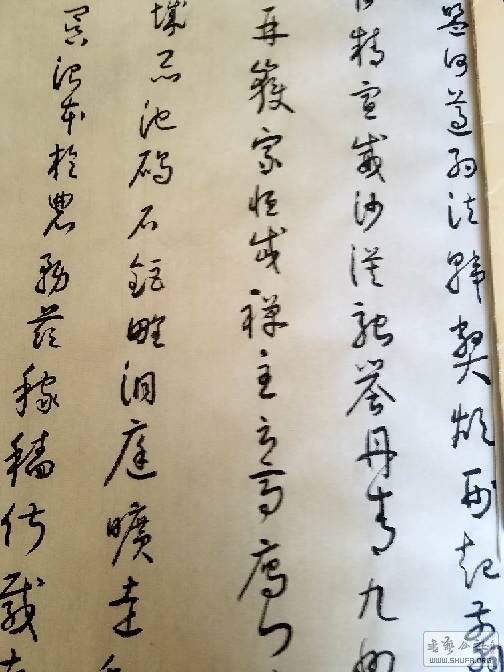 盟何遵約法韓弊煩刑起翦
精宣威沙漠馳譽丹青九州
并嶽宗恒岱禪主云亭雁門
城昆池碣石鉅野洞庭曠遠
冥治本於農務茲稼穡俶載南
WWW.SHUFA.ORG